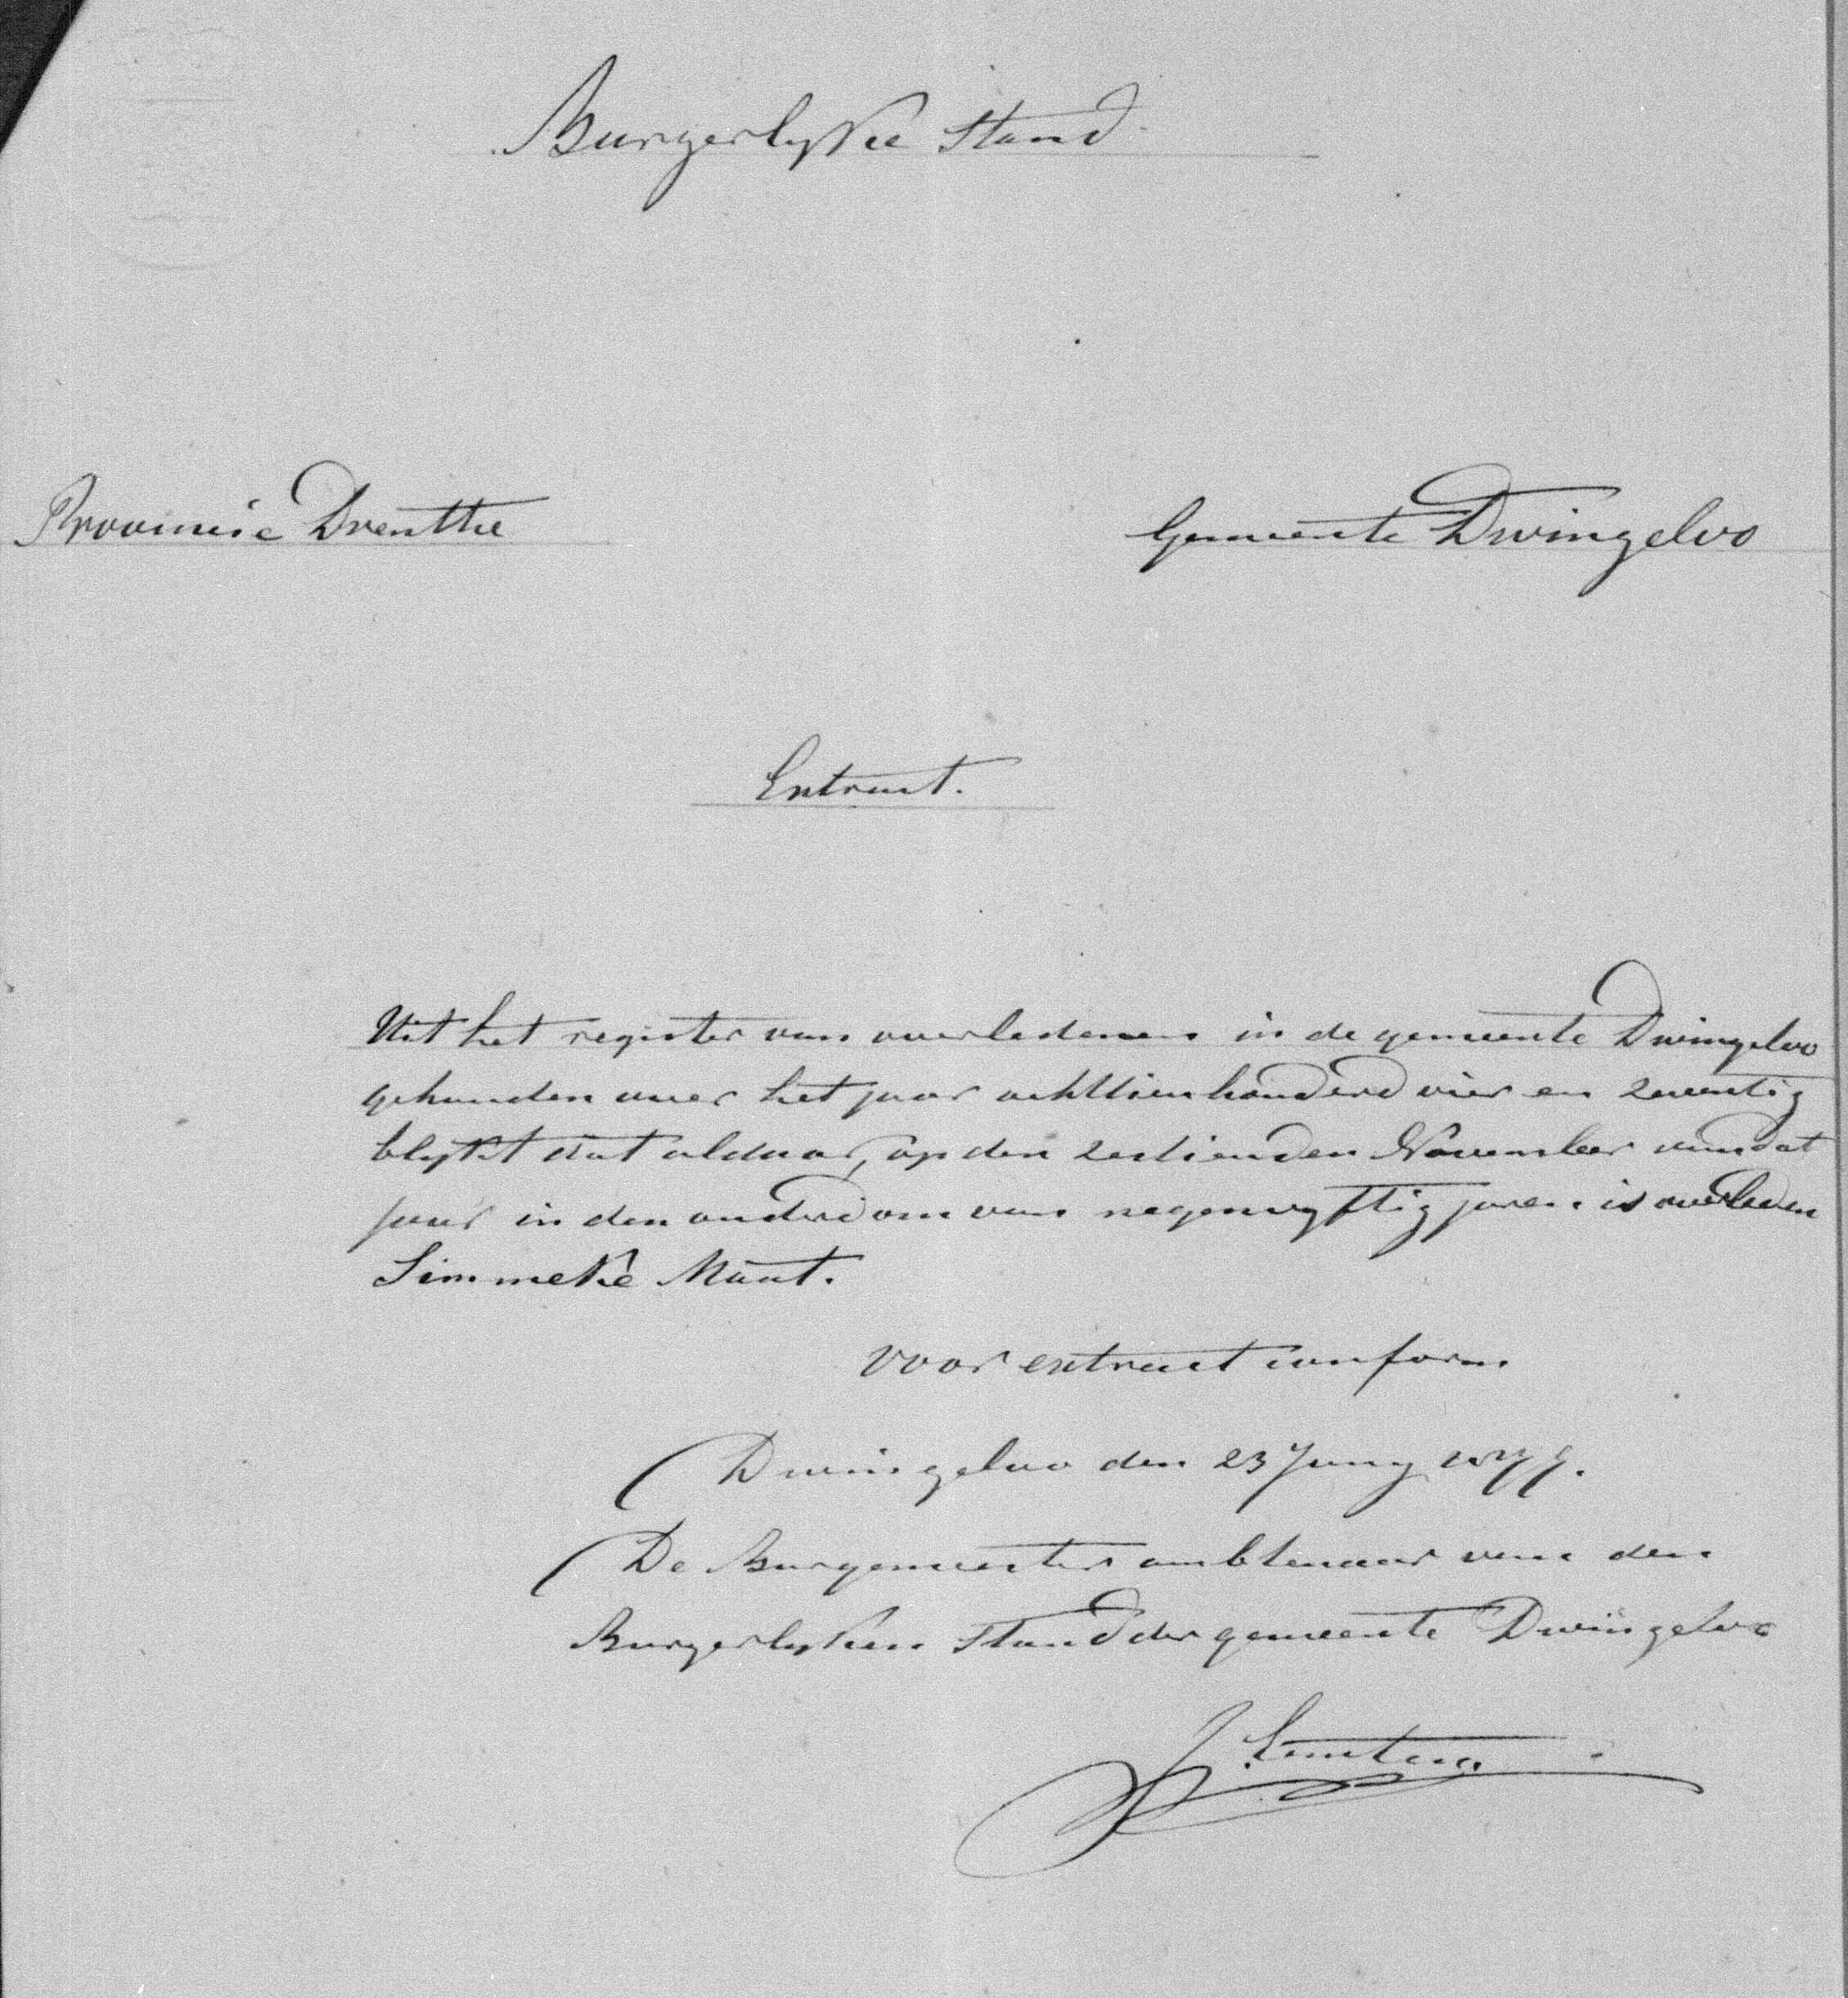 Burgerlyke Stand
Provincie Drenthe
Gemeente Dwingeloo
Extract.
Uit het register van overledenen in de gemeente Dwingeloo
gehouden over het jaar achttienhonderd vier en zeventig
blykt dat aldaar, op den zestienden November van dat
jaar in den ouderdom van negenvyftig jaren is overleden
Simmeke Maat.
Voor extract conform
Dwingeloo den 23 Juny
De Burgemeester ambtenaar van den
Burgerlyken Stand der gemeente Dwingeloo